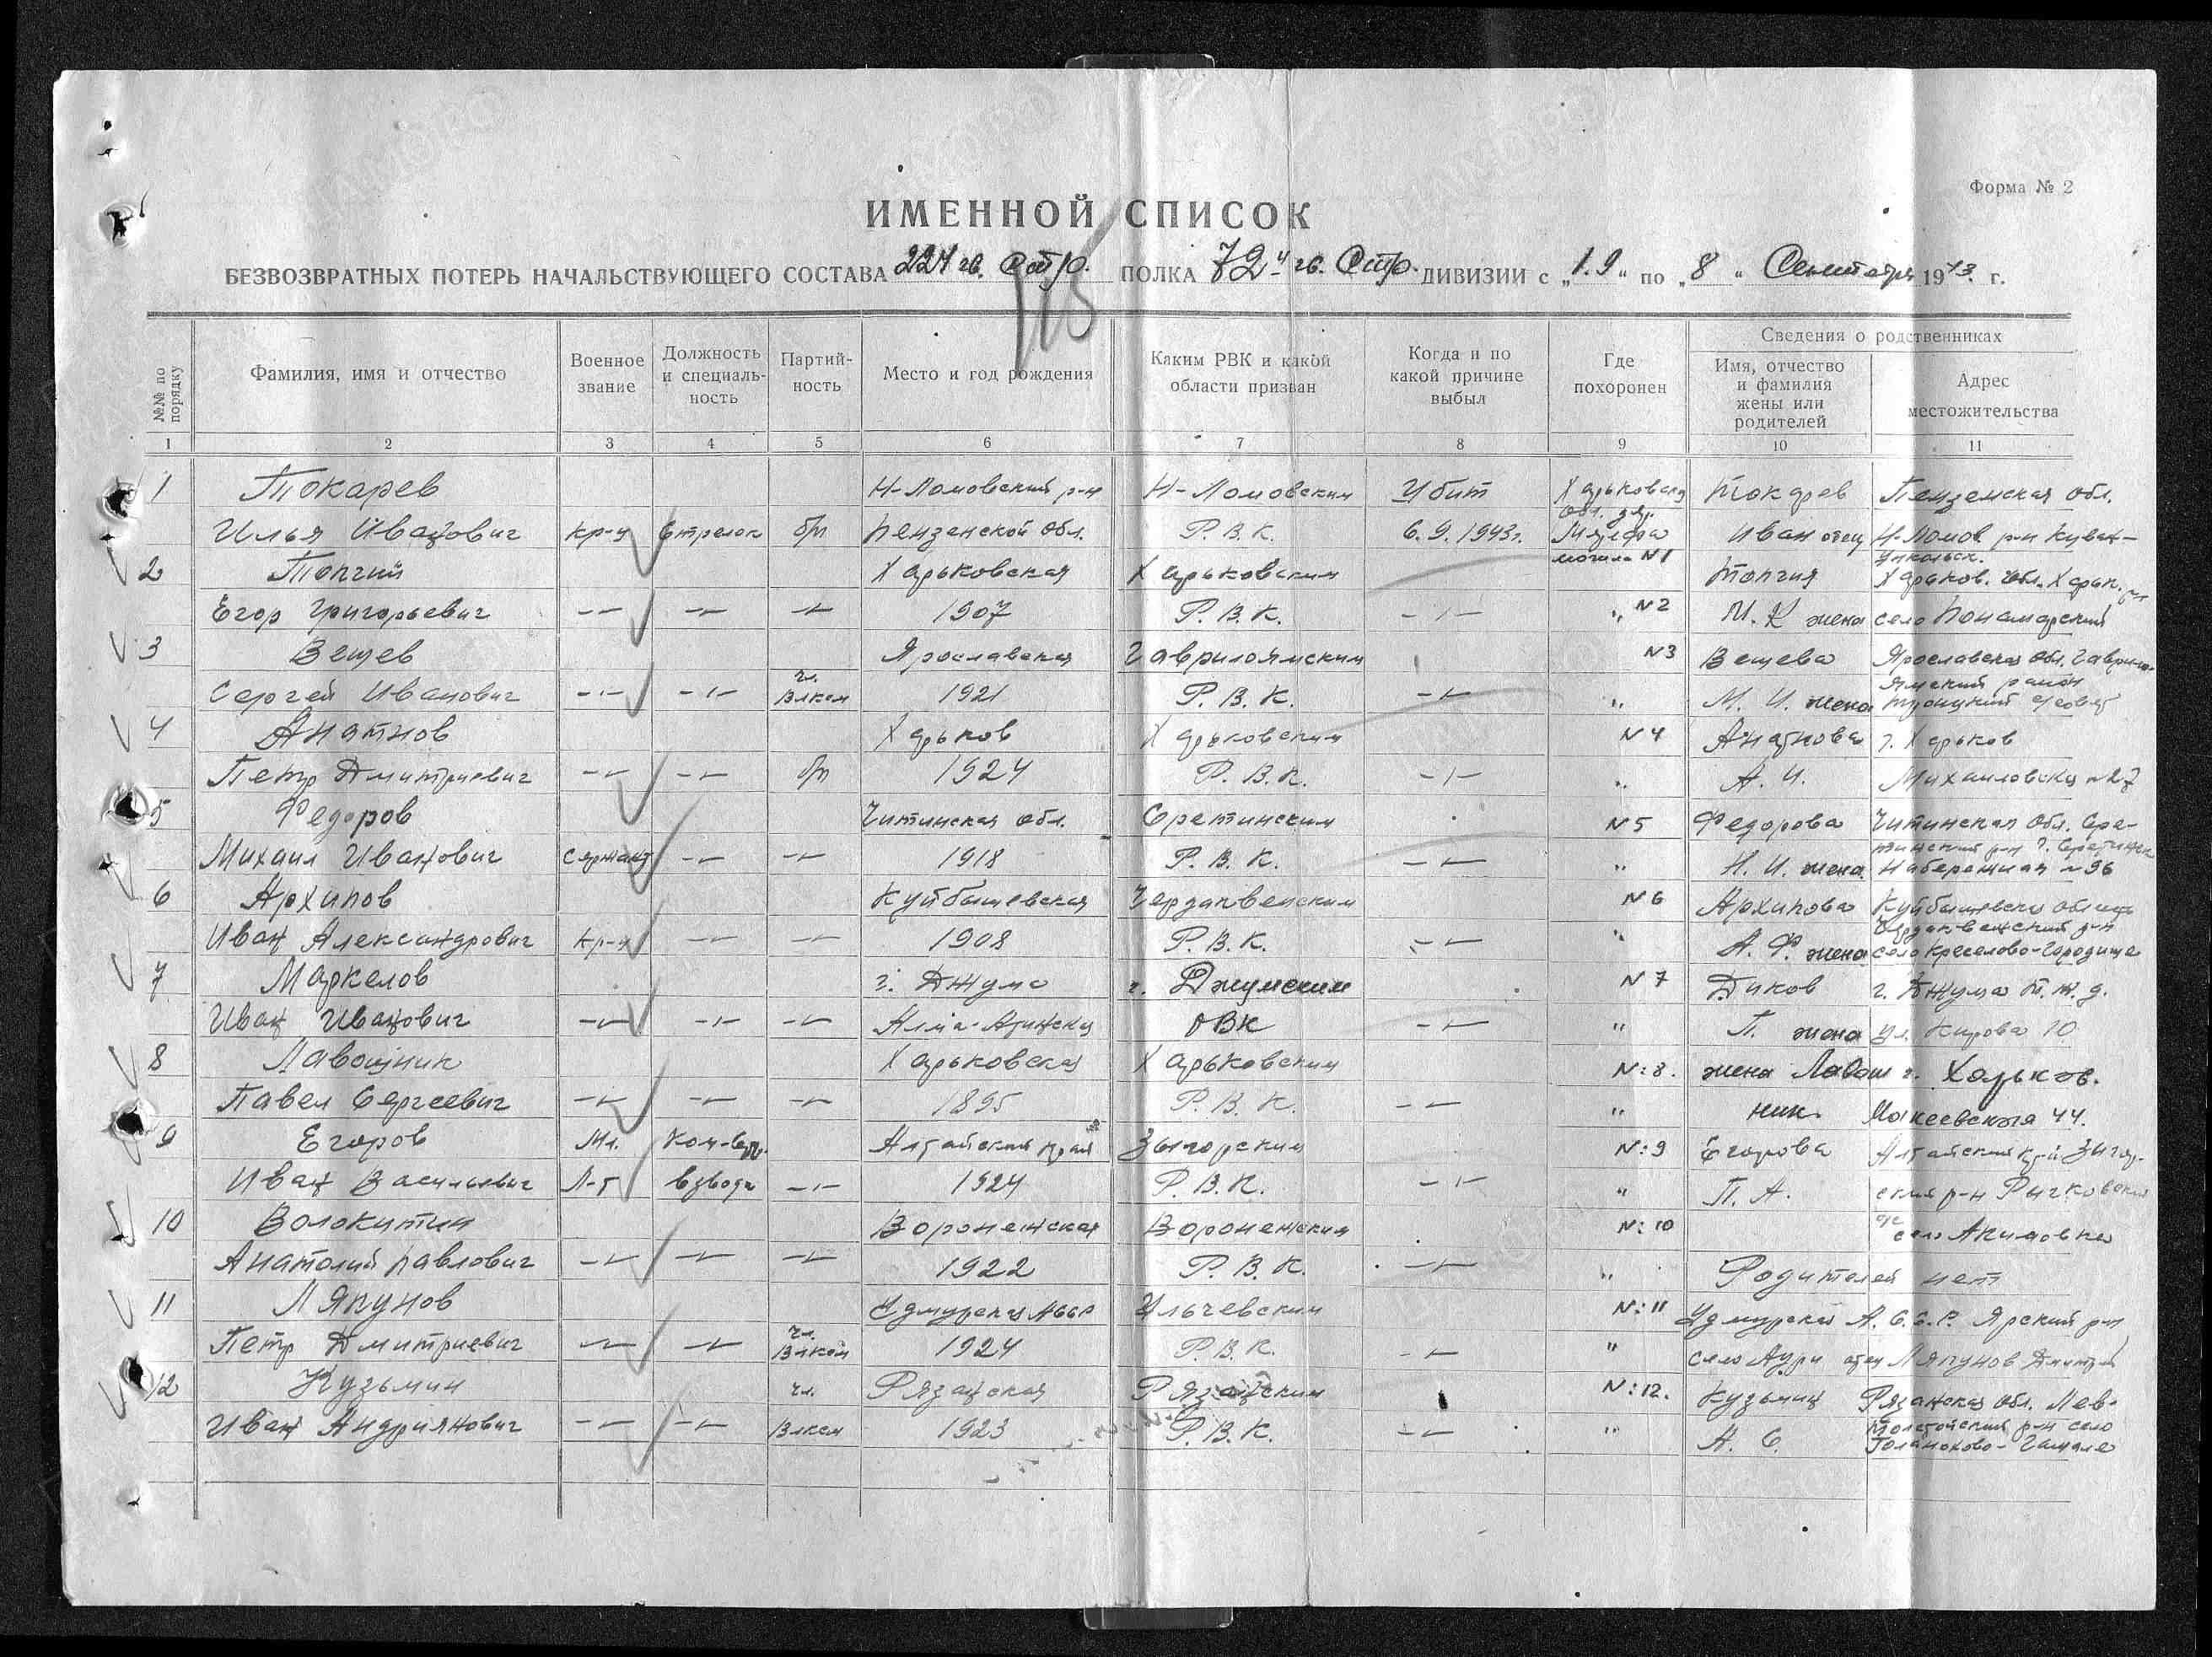 Форма № 2
ИМЕННОЙ СПИСОК
115
БЕЗВОЗВРАТНЫХ ПОТЕРЬ НАЧАЛЬСТВУЮЩЕГО СОСТАВА 224 гв. Стр. ПОЛКА 72-й гв. Стр. ДИВИЗИИ с „1.9“ по „8“ Сентября 1943 г.
№№ по порядку
Фамилия, имя и отчество
Военное звание
Должность и специальность
Партийность
Место и год рождения
Каким РВК и какой области призван
Когда и по какой причине выбыл
Где похоронен
Сведения о родственниках
Имя, отчество и фамилия жены или родителей
Адрес местожительства
1 2 3 4 5 6 7 8 9 10 11
1 Токарев Н-Ломовский р-н Н-Ломовским Убит Харьковская обл. Токарев Пензенская обл.
Илья Иванович кр-ц стрелок б/п Пензенской обл. Р.В.К. 6.9.1943г. могила N1 Иван отец Н-Ломов. р-н
2 Топчий Харьковская Харьковским N2 Топчия Харьков. обл. Харьк. р-н
Егор Григорьевич -"- -"- -"- 1907 Р.В.К. -"- " М. К жена село
3 Вещев Ярославская Гаврилоямским N3 Вещева Ярославская обл. Гаврило-
Ямский район
Сергей Иванович -"- -"- чл. Влксм 1921 Р.В.К. -"- " М. И. жена
4 Анатнов Харьков Харьковским N4 Анатнова г. Харьков
Петр Дмитриевич -"- -"- б/п 1924 Р.В.К. -"- " А. И. Михайловска N27
5 Федоров Читинская обл. Сретинским N5 Федорова Читинская обл. Сре-
тинский р-н г. Сретинск
Михаил Иванович Сержант -"- -"- 1918 Р.В.К. -"- " Н. И. жена Набережная N96
6 Архипов Куйбышевская N6 Архипова Куйбышевска область
Иван Александрович кр-ц -"- -"- 1908 Р.В.К. -"- " А. Ф. жена село Креселово-Городище
7 Маркелов г. Джума г. Джумским N7 Диков г. Джума Т.ж.д.
Иван Иванович -"- -"- -"- Алма-Атинска ОВК -"- " П. жена ул. Кирова 10
8 Лавошник Харьковская Харьковским N:8. жена Лавош г. Харьков.
Павел Сергеевич -"- -"- -"- 1895 Р.В.К. -"- " ник. Макеевская 44.
9 Егоров Мл. Ком-р Алтайский край N:9 Егорова Алтайский край
Иван Васильевич Л-т взвода -"- 1924 Р.В.К. -"- " П. А. р-н
10 Волокитин Воронежская Воронежским N:10 село Акимовка
Анатолий Павлович -"- -"- -"- 1922 Р.В.К. -"- " Родителей нет
11 Ляпунов Удмурская АССР N:11 Удмурская А.С.С.Р. Ярский р-н
Петр Дмитриевич -"- -"- чл. Влксм 1924 Р.В.К. -"- " село отец Ляпунов Дмитрий
12 Кузьмин чл. Рязанская Рязанским N:12. Кузьмин Рязанская обл. Лев-
Толстойский р-н село
Иван Андриянович -"- -"- Влксм 1923 Р.В.К. -"- " Н. С.